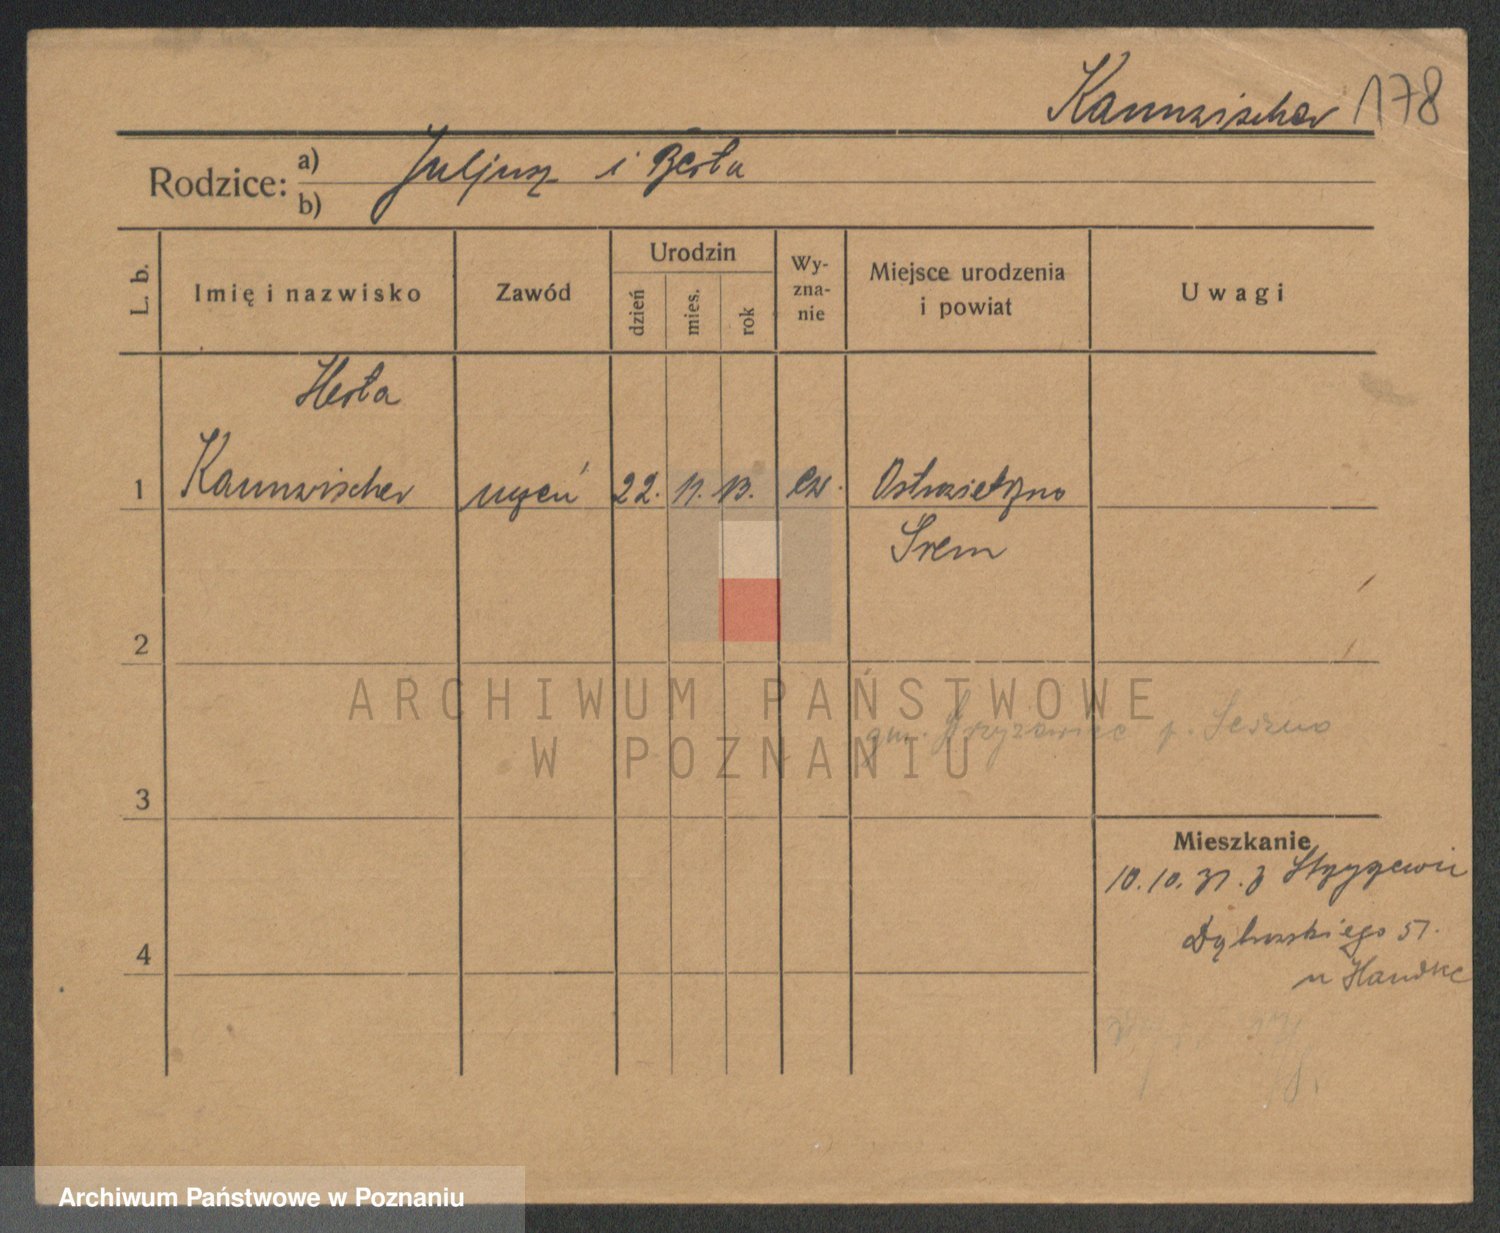 Kannwischer 178
Rodzice: a) Juljusz i Berta
b)
L. b. Imię i nazwisko Zawód Urodzin dzień mies. rok Wyznanie Miejsce urodzenia i powiat Uwagi
Herta
1 Kannwischer uczeń 22. 11. 13. ew.
Śrem
2
ARCHIWUM PAŃSTWOWE
W POZNANIU
gm. p. Leszno
3
Mieszkanie
10.10.31. z
Dąbrowskiego 51.
4
u Handke
Archiwum Państwowe w Poznaniu